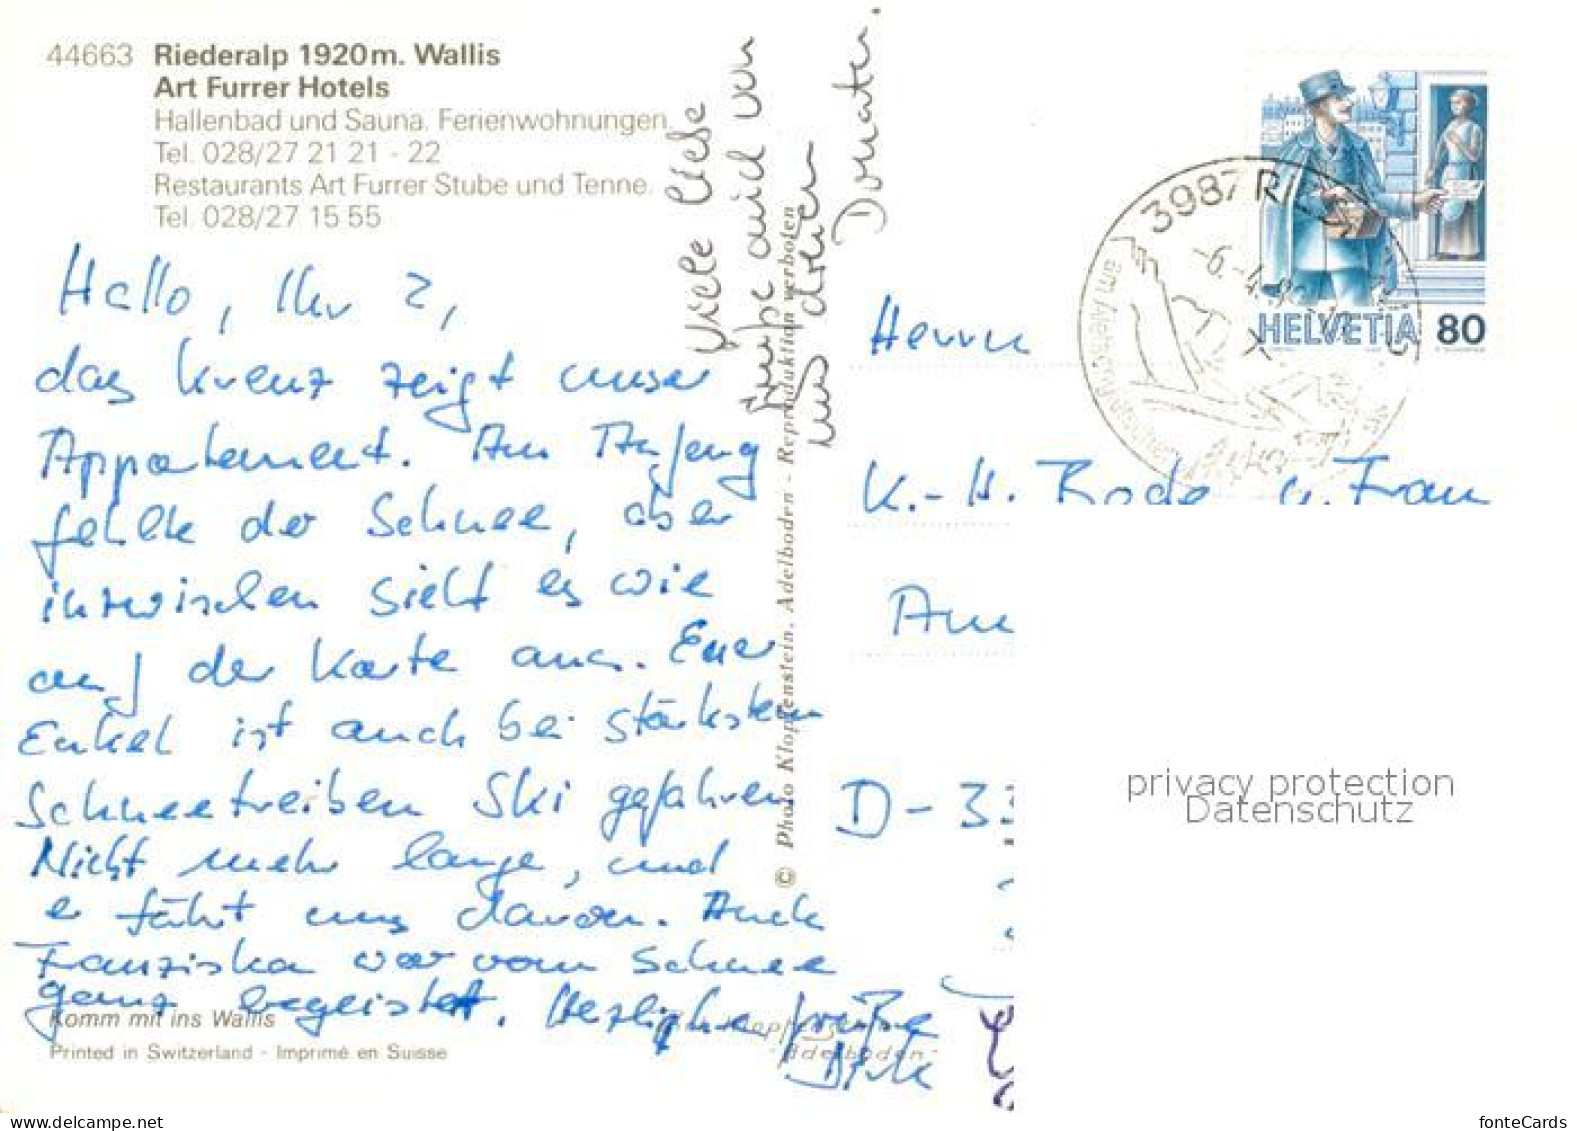 44663 Riederalp 1920m. Wallis
Art Furrer Hotels
Hallenbad und Sauna. Ferienwohnungen.
Tel. 028/27 21 21 - 22
Restaurants Art Furrer Stube und Tenne.
Tel. 028/27 15 55
Hallo, Ihr 2,
das Kreuz zeigt unser
Appartement. Am Anfang
fehlte der Schnee, aber
inzwischen sieht es wie
auf der Karte aus. Euer
Enkel ist auch bei stärkstem
Schneetreiben Ski gefahren
Nicht mehr lange, und
er fährt uns davon. Auch
Franziska war vom Schnee
ganz begeistert. Herzliche Grüße
Dirk
Viele liebe
Grüße auch von
uns dreien
Renate.
Komm mit ins Wallis
Printed in Switzerland - Imprimé en Suisse
© Photo Klopfenstein, Adelboden - Reproduktion verboten
Adelboden
3987 RI
-6.-4.
am Aletsch
HELVETIA 80
Herrn
K.-H. Bode u. Frau
Am
D-33
privacy protection
Datenschutz
fonteCards